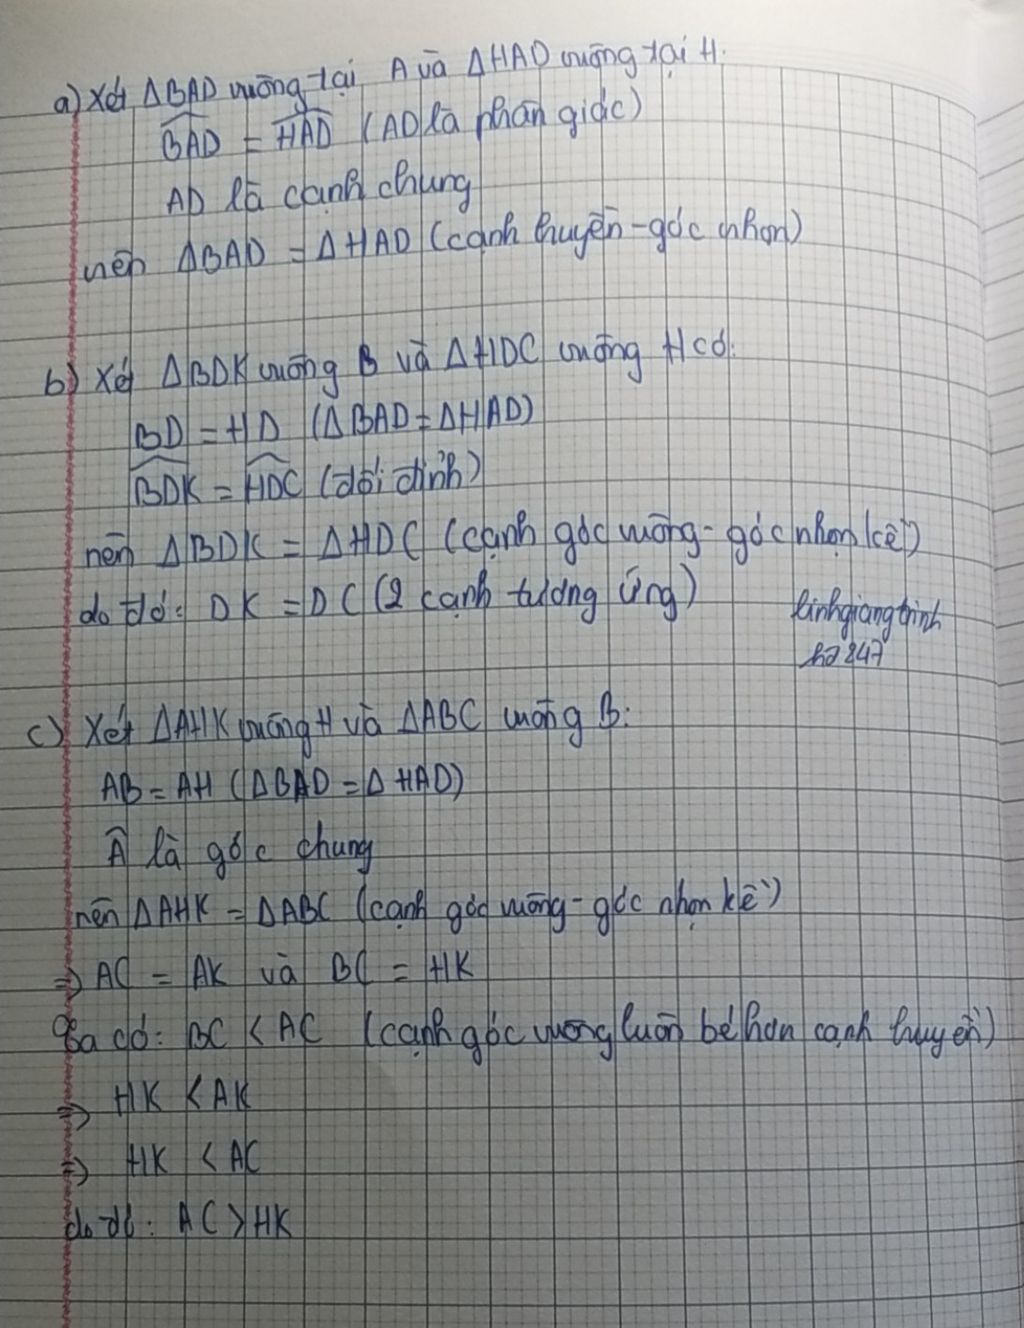 a) Xét ΔBAD vuông tại A và ΔHAD vuông tại H.
BAD = HAD (AD là phân giác)
AD là cạnh chung
nên ΔBAD = ΔHAD (cạnh huyền-góc nhọn)
b) Xét ΔBDK vuông B và ΔHDC vuông H có:
BD = HD (ΔBAD = ΔHAD)
BDK = HDC (đối đỉnh)
nên ΔBDK = ΔHDC (cạnh góc vuông-góc nhọn kề)
do đó: DK = DC (2 cạnh tương ứng)
linhgiangtrinh
hd247
c) Xét ΔAHK vuông H và ΔABC vuông B:
AB = AH (ΔBAD = ΔHAD)
Â là góc chung
nên ΔAHK = ΔABC (cạnh góc vuông-góc nhọn kề)
=> AC = AK và BC = HK
Ta có: BC < AC (cạnh góc vuông luôn bé hơn cạnh huyền)
=> HK < AK
=> HK < AC
do đó: AC > HK